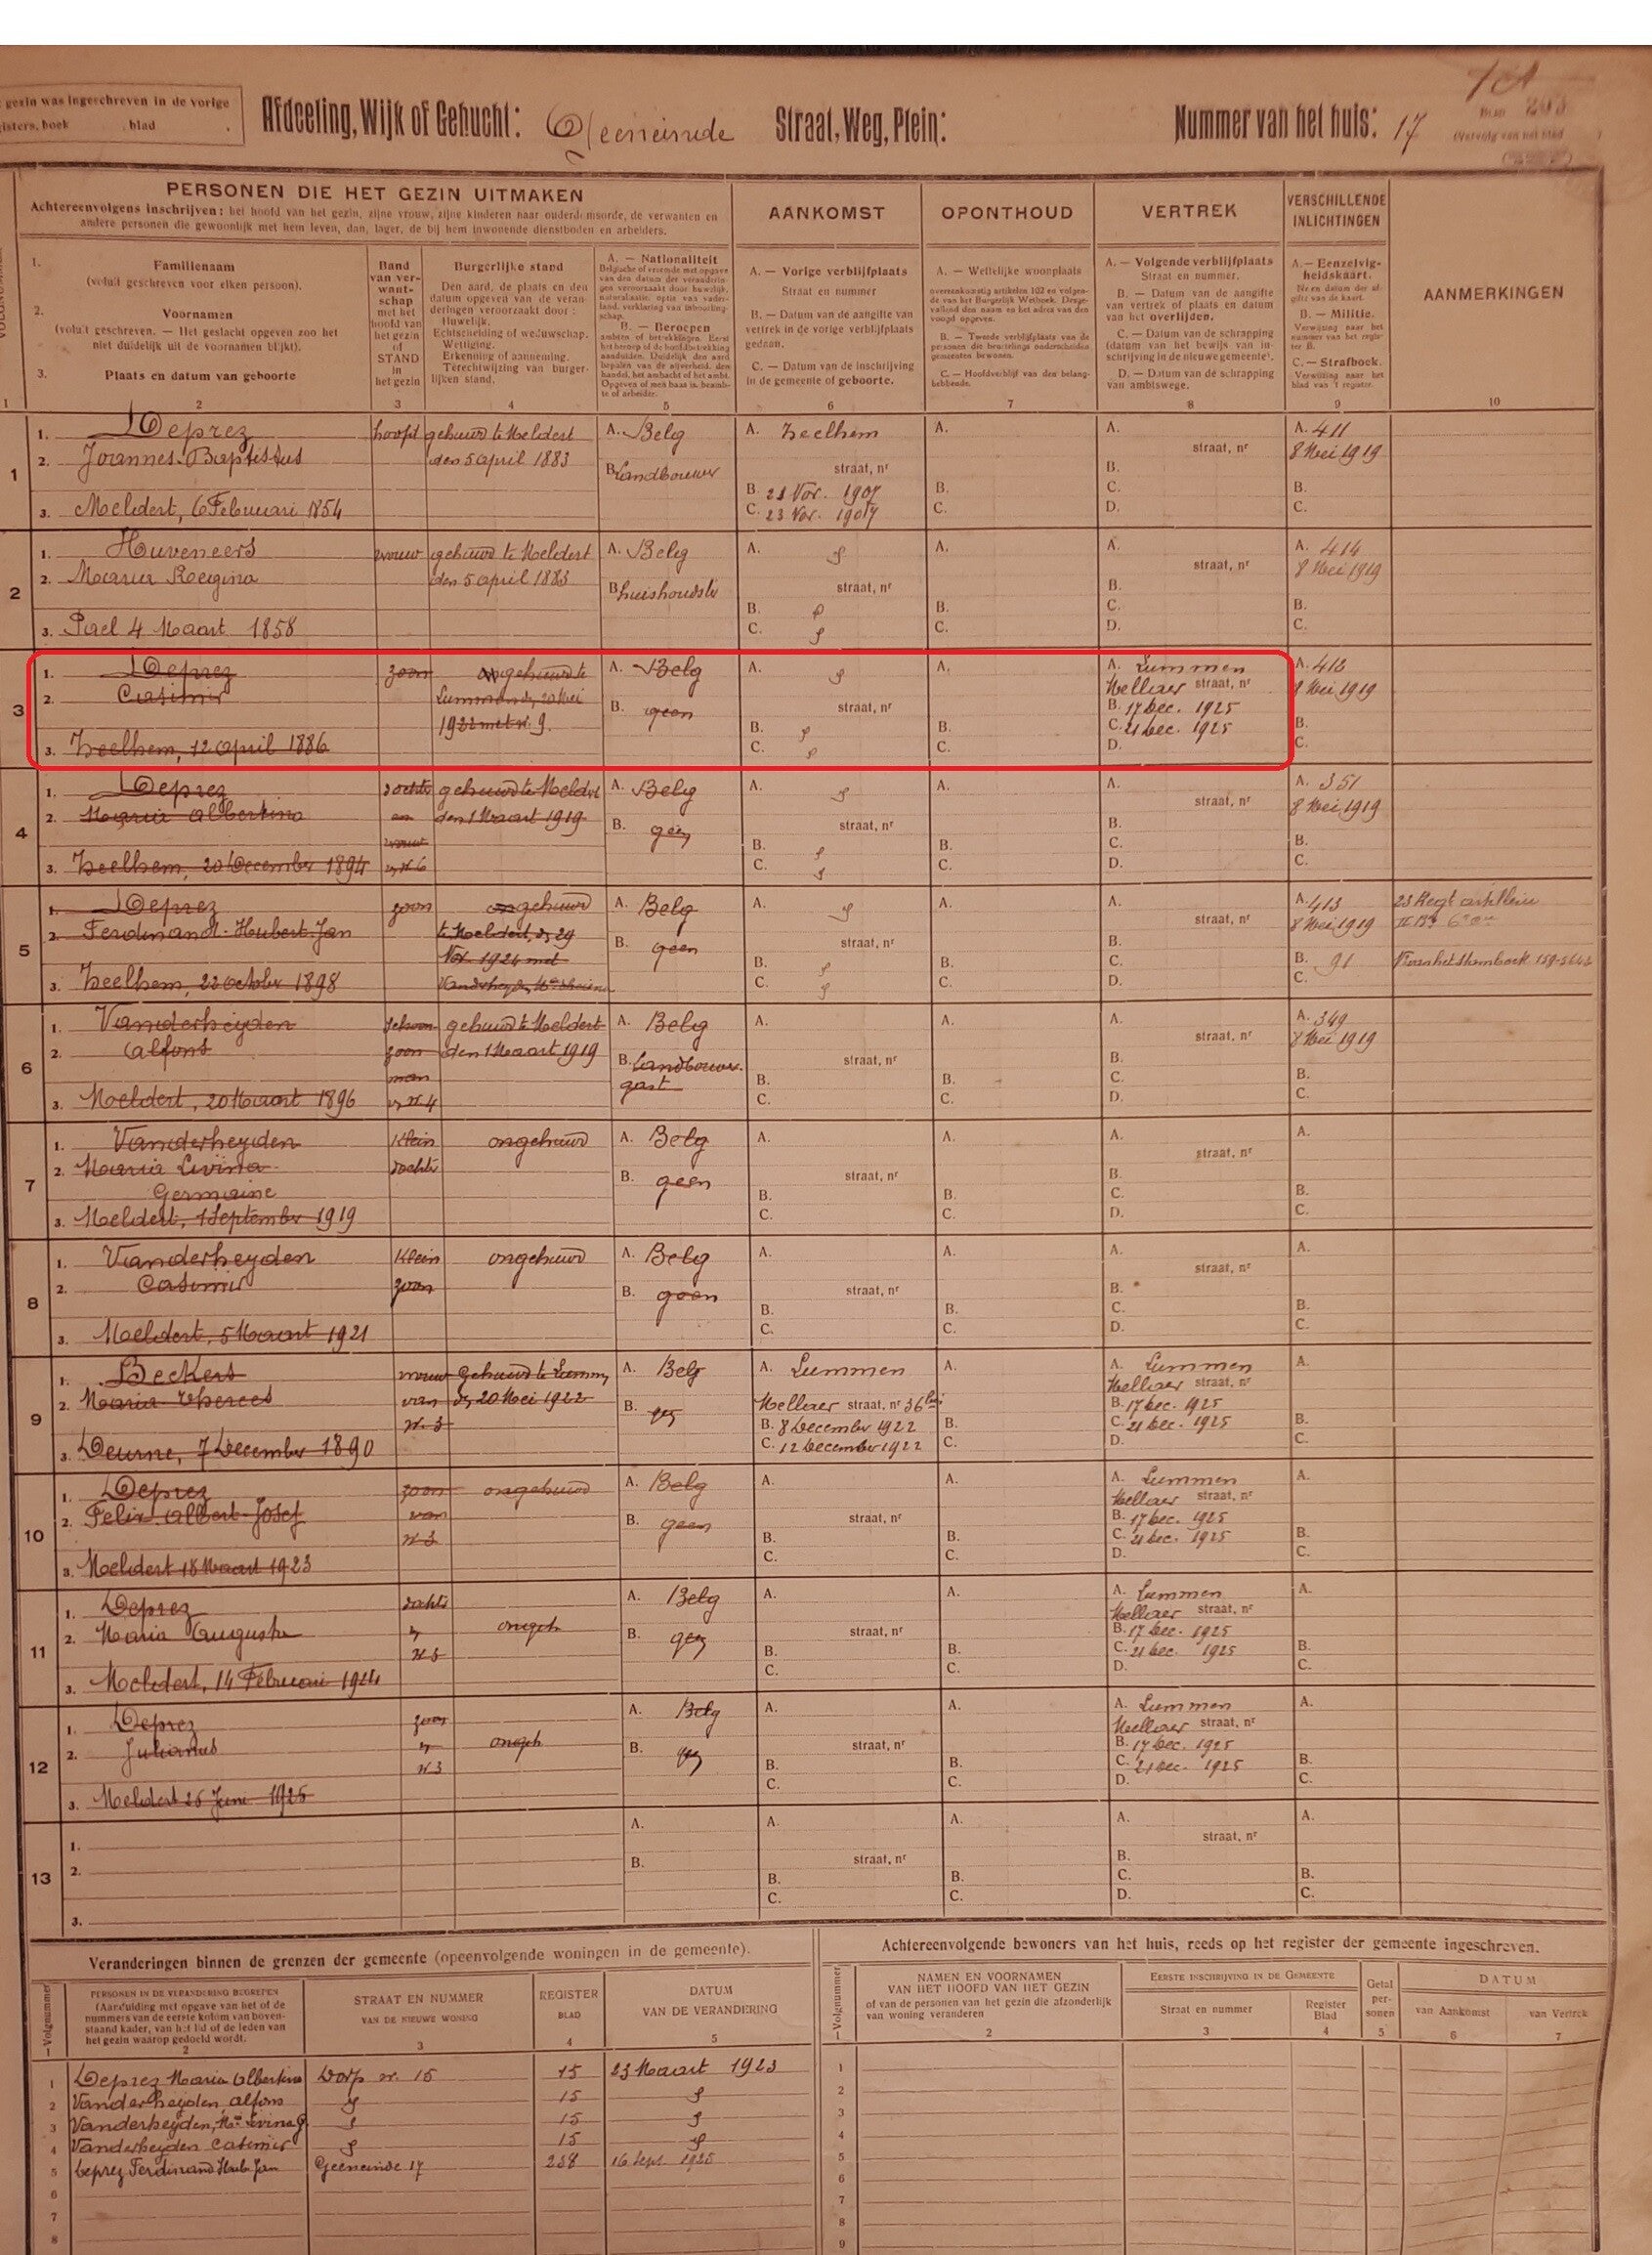 gezin was ingeschreven in de vorige
isters, boek blad .
Afdeeling, Wijk of Gehucht: Geeneinde Straat, Weg, Plein: Nummer van het huis: 17
(Vervolg van het blad )
PERSONEN DIE HET GEZIN UITMAKEN
Achtereenvolgens inschrijven: het hoofd van het gezin, zijne vrouw, zijne kinderen naar ouderdomsorde, de verwanten en
andere personen die gewoonlijk met hem leven, dan, lager, de bij hem inwonende dienstboden en arbeiders.
AANKOMST
OPONTHOUD
VERTREK
VERSCHILLENDE
INLICHTINGEN
1. Familienaam
(voluit geschreven voor elken persoon).
2. Voornamen
(voluit geschreven. — Het geslacht opgeven zoo het
niet duidelijk uit de voornamen blijkt).
3. Plaats en datum van geboorte
Band
van ver-
want-
schap
met het
hoofd van
het gezin
of
STAND
in
het gezin
Burgerlijke stand
Den aard, de plaats en den
datum opgeven van de veran-
deringen veroorzaakt door:
Huwelijk.
Echtscheiding of weduwschap.
Wettiging.
Erkenning of aanneming.
Terechtwijzing van burger-
lijken stand.
A. — Nationaliteit
B. — Beroepen
A. — Vorige verblijfplaats
Straat en nummer
B. — Datum van de aangifte van
vertrek in de vorige verblijfplaats
gedaan.
C. — Datum van de inschrijving
in de gemeente of geboorte.
A. — Wettelijke woonplaats
B. — Tweede verblijfplaats van de
personen die beurtelings onderscheiden
gemeenten bewonen.
C. — Hoofdverblijf van den belang-
hebbende.
A. — Volgende verblijfplaats
Straat en nummer.
B. — Datum van de aangifte
van vertrek of plaats en datum
van het overlijden.
C. — Datum van de schrapping
(datum van het bewijs van in-
schrijving in de nieuwe gemeente).
D. — Datum van de schrapping
van ambtswege.
A. — Eenzelvig-
heidskaart.
B. — Militie.
Verwijzing naar het
nummer van het regis-
ter B.
C. — Strafboek.
Verwijzing naar het
blad van 't register.
AANMERKINGEN
1 2 3 4 5 6 7 8 9 10
1
1. Deprez hoofd gehuwd te Meldert A. Belg A. Zeelhem A. A. A. 411
2. Joannes-Baptistus den 5 april 1883 B. Landbouwer straat, nr straat, nr 8 Mei 1919
B. 21 Nov. 1907 B. B. B.
3. Meldert, 6 Februari 1854 C. 23 Nov. 1907 C. C. D. C.
2
1. Huveneers vrouw gehuwd te Meldert A. Belg A. A. A. A. 414
2. Maria Regina den 5 april 1883 B. huishoudster straat, nr straat, nr 8 Mei 1919
B. B. B. B.
3. Pael 4 Maart 1858 C. C. C. D. C.
3
1. Deprez zoon ongehuwd te A. Belg A. A. A. Lummen A. 412
2. Casimir Lummen den 20 Mei straat, nr Mellaer straat, nr 8 Mei 1919
1922 met nr. 9. B. geen B. B. B. 17 dec. 1925 B.
3. Zeelhem, 12 april 1886 C. C. C. 21 dec. 1925 D. C.
4
1. Deprez dochter gehuwd te Meldert A. Belg A. A. A. A. 351
2. Maria Albertina en den 1 Maart 1919 B. geen straat, nr straat, nr 8 Mei 1919
vrouw B. B. B. B.
3. Zeelhem, 20 December 1894 v. N. 6 C. C. C. D. C.
5
1. Deprez zoon ongehuwd A. Belg A. A. A. A. 413 23 Regt artillerie
2. Ferdinand-Hubert-Jan te Meldert, den 29 straat, nr straat, nr 8 Mei 1919
Nov. 1924 met B. geen B. B. B. B. 91
3. Zeelhem, 22 october 1898 C. C. C. D. C.
6
1. Vanderheyden schoon gehuwd te Meldert A. Belg A. A. A. A. 349
2. Alfons zoon den 1 Maart 1919 B. Landbouwers straat, nr straat, nr 8 Mei 1919
man gast B. B. B. B.
3. Meldert, 20 Maart 1896 v. N. 4 C. C. C. D. C.
7
1. Vanderheyden klein ongehuwd A. Belg A. A. A. A.
2. Maria Livina dochter B. geen straat, nr straat, nr
Germaine B. B. B. B.
3. Meldert, 1 September 1919 C. C. C. D. C.
8
1. Vanderheyden klein ongehuwd A. Belg A. A. A. A.
2. Casimir zoon B. geen straat, nr straat, nr
B. B. B. B.
3. Meldert, 5 Maart 1921 C. C. C. D. C.
9
1. Beckers vrouw gehuwd te Lummen A. Belg A. Lummen A. A. Lummen A.
2. Maria Theress van den 20 Mei 1922 B. Mellaer straat, nr 36 Mellaer straat, nr
N. 3 B. 8 December 1922 B. B. 17 dec. 1925 B.
3. Deurne, 7 December 1890 C. 12 December 1922 C. C. 21 dec. 1925 D. C.
10
1. Deprez zoon ongehuwd A. Belg A. A. A. Lummen A.
2. Felix-Albert-Josef van B. geen straat, nr Mellaer straat, nr
N. 3 B. B. B. 17 dec. 1925 B.
3. Meldert 18 Maart 1923 C. C. C. 21 dec. 1925 D. C.
11
1. Deprez dochter A. Belg A. A. A. Lummen A.
2. Maria Augusta v. ongeh B. geen straat, nr Mellaer straat, nr
N. 3 B. B. B. 17 dec. 1925 B.
3. Meldert, 14 Februari 1924 C. C. C. 21 dec. 1925 D. C.
12
1. Deprez zoon A. Belg A. A. A. Lummen A.
2. Julianus v. ongeh B. straat, nr Mellaer straat, nr
N. 3 B. B. B. 17 dec. 1925 B.
3. Meldert 26 Juni 1925 C. C. C. 21 dec. 1925 D. C.
13
1. A. A. A. A. A.
2. B. straat, nr straat, nr
B. B. B. B.
3. C. C. C. D. C.
Veranderingen binnen de grenzen der gemeente (opeenvolgende woningen in de gemeente).
Volgnummer
PERSONEN IN DE VERANDERING BEGREPEN
(Aanduiding met opgave van het of de
nummers van de eerste kolom van boven-
staand kader, van het lid of de leden van
het gezin waarop gedoeld wordt.
STRAAT EN NUMMER
VAN DE NIEUWE WONING
REGISTER
BLAD
DATUM
VAN DE VERANDERING
1 2 3 4 5
1 Deprez Maria Albertina Dorp nr. 15 15 23 Maart 1923
2 Vanderheyden, Alfons 15
3 Vanderheyden, Ma Livina G. 15
4 Vanderheyden Casimir 15
5 Deprez Ferdinand Hub. Jan Geeneinde 17 258 16 Sept 1925
6
7
8
Achtereenvolgende bewoners van het huis, reeds op het register der gemeente ingeschreven.
Volgnummer
NAMEN EN VOORNAMEN
VAN HET HOOFD VAN HET GEZIN
of van de personen van het gezin die afzonderlijk
van woning veranderen
EERSTE INSCHRIJVING IN DE GEMEENTE
Straat en nummer
Register
Blad
Getal
per-
sonen
DATUM
van Aankomst
van Vertrek
1 2 3 4 5 6 7
1
2
3
4
5
6
7
8
9